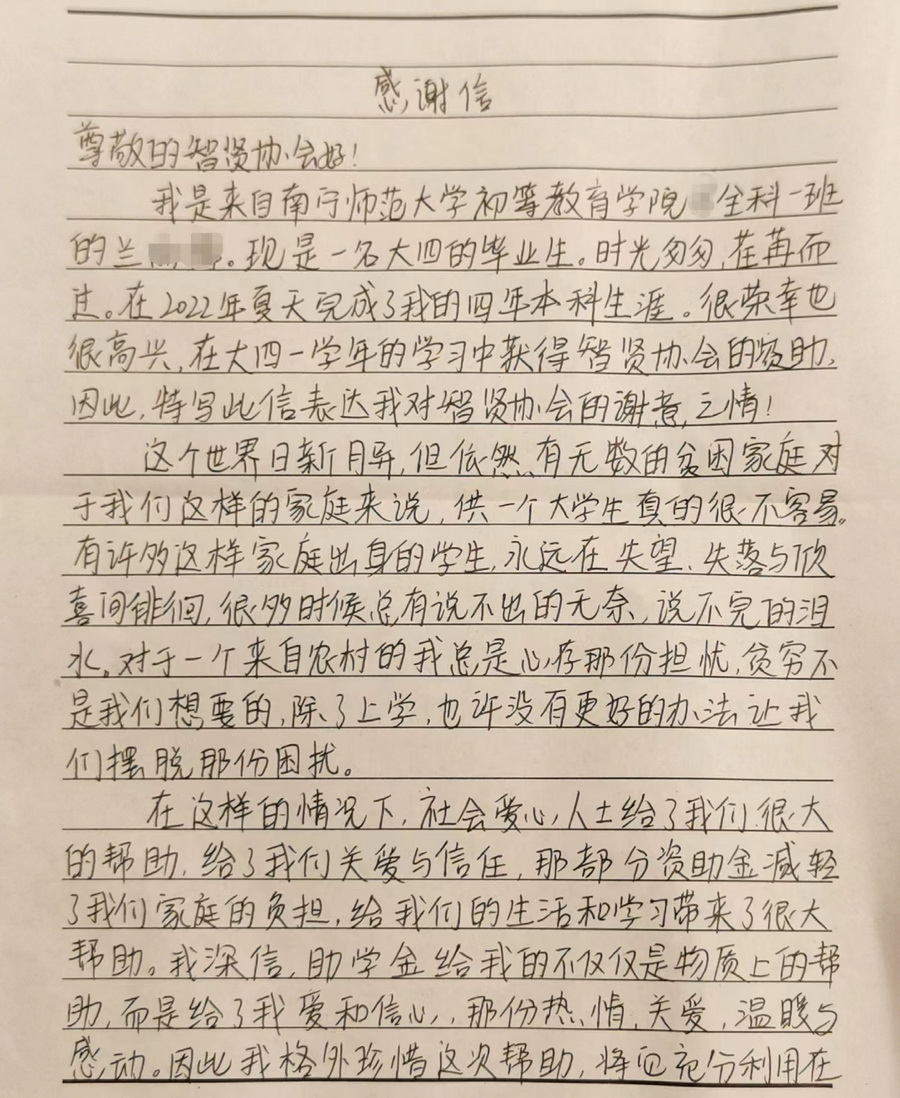 感谢信
尊敬的智贤协会好!
我是来自南宁师范大学初等教育学院全科一班
的兰。现是一名大四的毕业生。时光匆匆,荏苒而
过。在2022年夏天完成了我的四年本科生涯。很荣幸也
很高兴,在大四一学年的学习中获得智贤协会的资助。
因此,特写此信表达我对智贤协会的谢意之情!
这个世界日新月异,但依然有无数的贫困家庭对
于我们这样的家庭来说,供一个大学生真的很不容易。
有许多这样家庭出身的学生,永远在失望、失落与欣
喜间徘徊,很多时候总有说不出的无奈,说不完的泪
水。对于一个来自农村的我总是心存那份担忧,贫穷不
是我们想要的,除了上学,也许没有更好的办法让我
们摆脱那份困扰。
在这样的情况下,社会爱心人士给了我们很大
的帮助,给了我们关爱与信任,那部分资助金减轻
了我们家庭的负担,给我们的生活和学习带来了很大
帮助。我深信,助学金给我的不仅仅是物质上的帮
助,而是给了我爱和信心,那份热情,关爱,温暖与
感动。因此我格外珍惜这次帮助,将它充分利用在